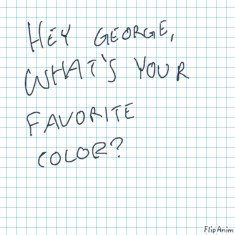 HEY GEORGE,
WHAT'S YOUR
FAVORITE
COLOR?
FlipAnim